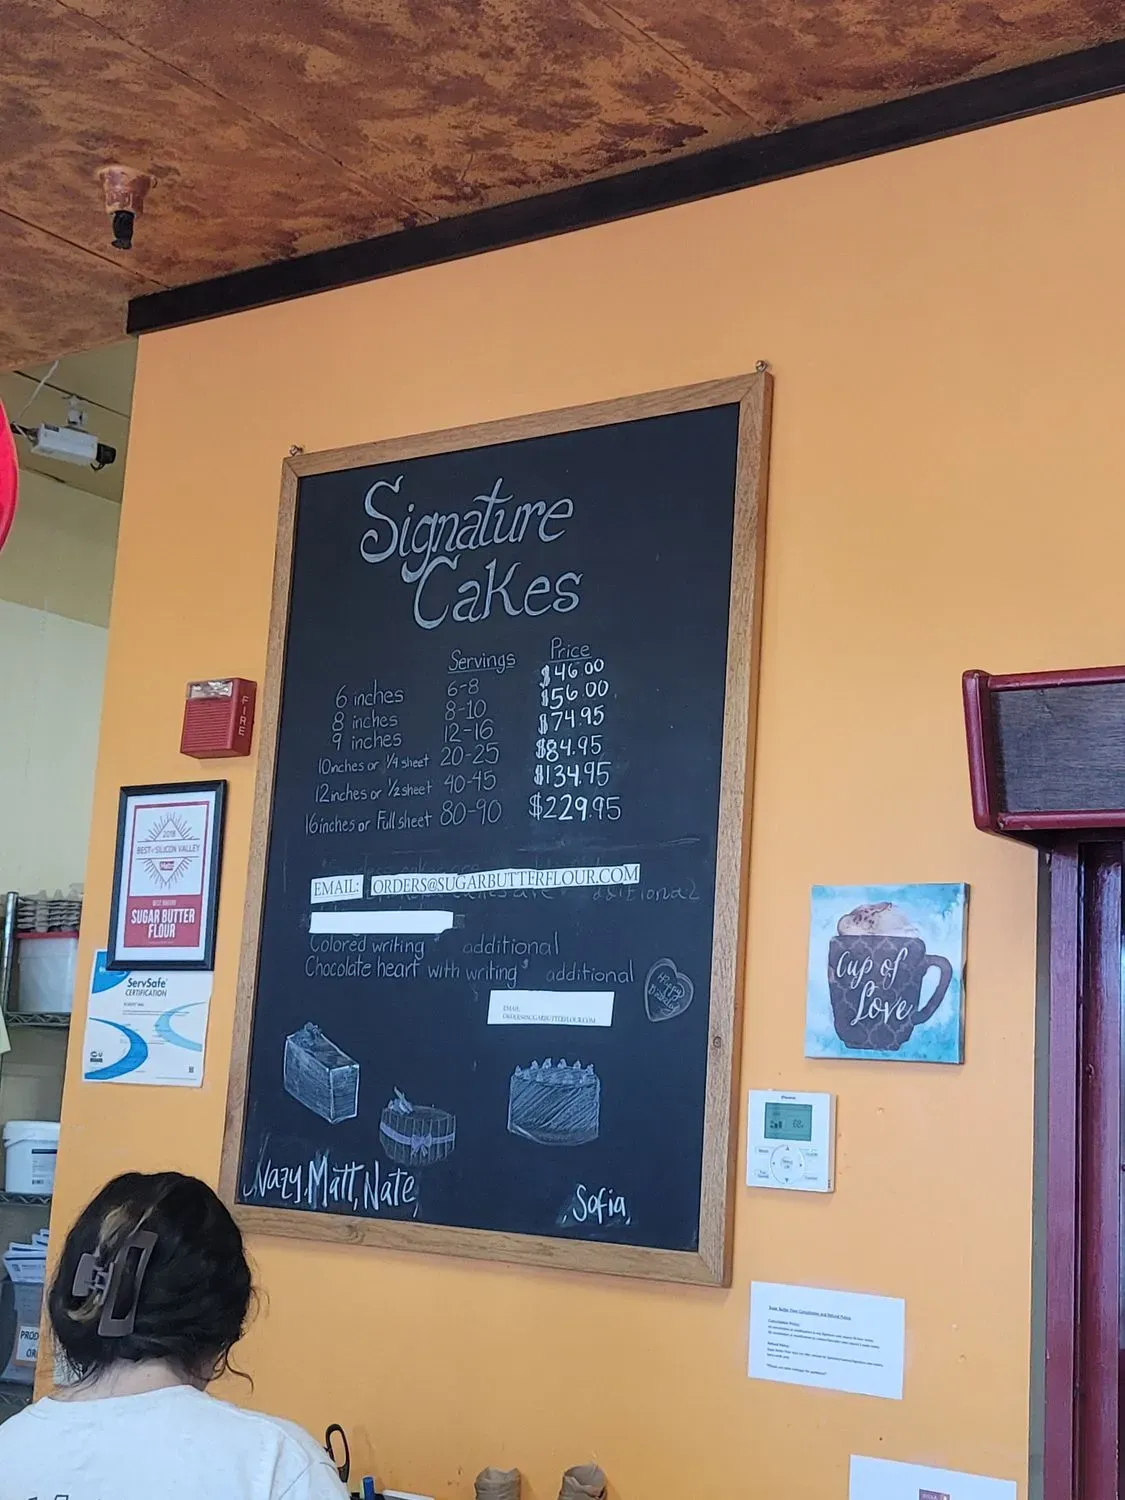 Signature
Cakes
Servings Price
6 inches 6-8 $46.00
8 inches 8-10 $56.00
9 inches 12-16 $74.95
10inches or 1/4 sheet 20-25 $84.95
12inches or 1/2 sheet 40-45 $134.95
16inches or Full sheet 80-90 $229.95
EMAIL: ORDERS@SUGARBUTTERFLOUR.COM
additional
Colored writing additional
Chocolate heart with writing additional
Happy
Birthday
EMAIL:
ORDERS@SUGARBUTTERFLOUR.COM
Nazy, Matt, Nate,
, Sofia,
FIRE
2018
BEST OF SILICON VALLEY
Metro
BEST BAKERY
SUGAR BUTTER
FLOUR
ServSafe
CERTIFICATION
Cup of
Love
Sugar Butter Flour Cancellation and Refund Policy
Cancellation Policy:
Refund Policy:
PROD
OR